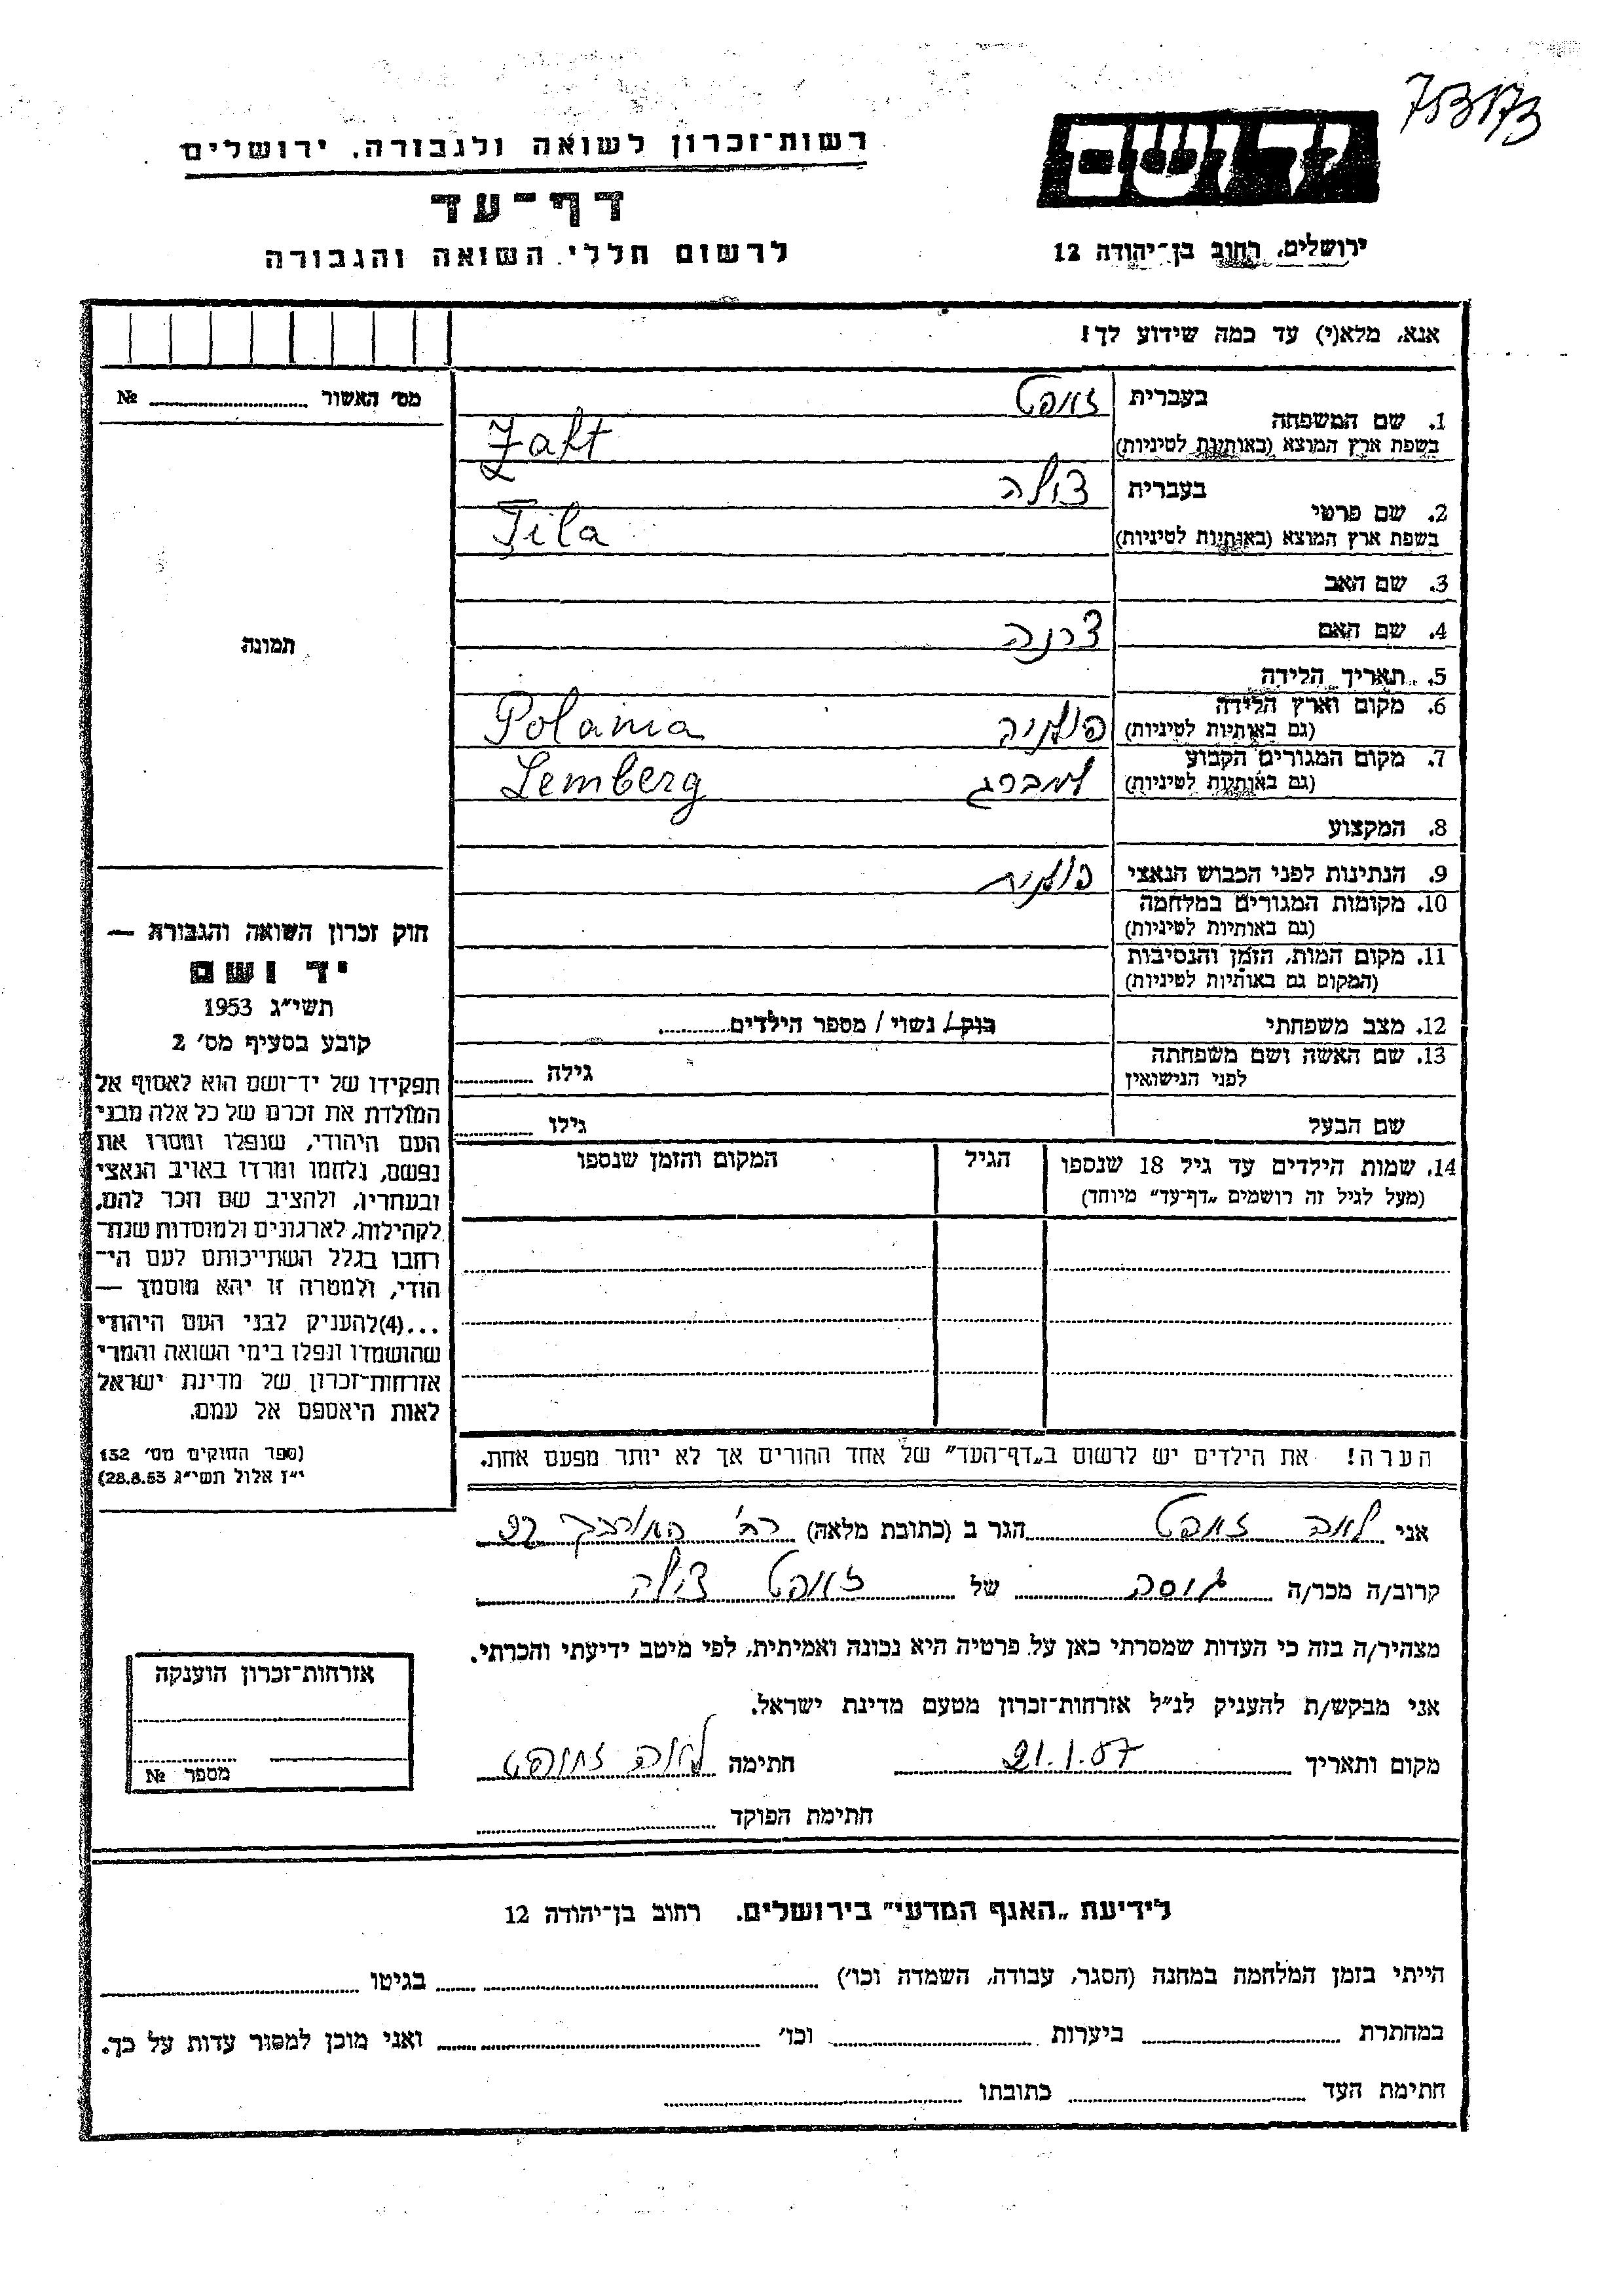 753173
רשות־זכרון לשואה ולגבורה. ירושלים
יד ושם
דף־עד
ירושלים, רחוב בן־יהודה 12
לרשום חללי השואה והגבורה
אנא, מלא(י) עד כמה שידוע לך!
מס׳ האשור № ........
בעברית זאפט
1. שם המשפחה
בשפת ארץ המוצא (באותיות לטיניות) Zaft
בעברית צילה
2. שם פרטי
בשפת ארץ המוצא (באותיות לטיניות) Tila
3. שם האב
4. שם האם
תמונה
5. תאריך הלידה
6. מקום וארץ הלידה
(גם באותיות לטיניות) פולניה Polania
7. מקום המגורים הקבוע
(גם באותיות לטיניות) למברג Lemberg
8. המקצוע
9. הנתינות לפני הכבוש הנאצי פולנית
10. מקומות המגורים במלחמה
(גם באותיות לטיניות)
11. מקום המות, הזמן והנסיבות
(המקום גם באותיות לטיניות)
12. מצב משפחתי רווק/ נשוי / מספר הילדים........
13. שם האשה ושם משפחתה
לפני הנישואין גילה ........
שם הבעל גילו ........
14. שמות הילדים עד גיל 18 שנספו הגיל המקום והזמן שנספו
(מעל לגיל זה רושמים „דף־עד” מיוחד)
חוק זכרון השואה והגבורה —
יד ושם
תשי״ג 1953
קובע בסעיף מס׳ 2
תפקידו של יד־ושם הוא לאסוף אל
המולדת את זכרם של כל אלה מבני
העם היהודי, שנפלו ומסרו את
נפשם, נלחמו ומרדו באויב הנאצי
ובעוזריו, ולהציב שם וזכר להם,
לקהילות, לארגונים ולמוסדות שנח־
רבו בגלל השתייכותם לעם הי־
הודי, ולמטרה זו יהא מוסמך —
...(4) להעניק לבני העם היהודי
שהושמדו ונפלו בימי השואה והמרי
אזרחות־זכרון של מדינת ישראל
לאות היאספם אל עמם.
(ספר החוקים מס׳ 132
י״ז אלול תשי״ג 28.8.53)
הערה! את הילדים יש לרשום ב„דף־העד” של אחד ההורים אך לא יותר מפעם אחת.
אני לאה זאפט הגר ב (כתובת מלאה) רח׳
קרוב/ה מכר/ה גיסה של זאפט צילה
מצהיר/ה בזה כי העדות שמסרתי כאן על פרטיה היא נכונה ואמיתית, לפי מיטב ידיעתי והכרתי.
אני מבקש/ת להעניק לנ״ל אזרחות־זכרון מטעם מדינת ישראל.
מקום ותאריך 21.1.57 חתימה לאה זאפט
חתימת הפוקד ........
אזרחות־זכרון הוענקה
מספר №
לידיעת „האגף המדעי” בירושלים. רחוב בן־יהודה 12
הייתי בזמן המלחמה במחנה (הסגר, עבודה, השמדה וכו׳) ........ בגיטו ........
במחתרת ........ ביערות ........ וכו׳ ........ ואני מוכן למסור עדות על כך.
חתימת העד ........ כתובתו ........